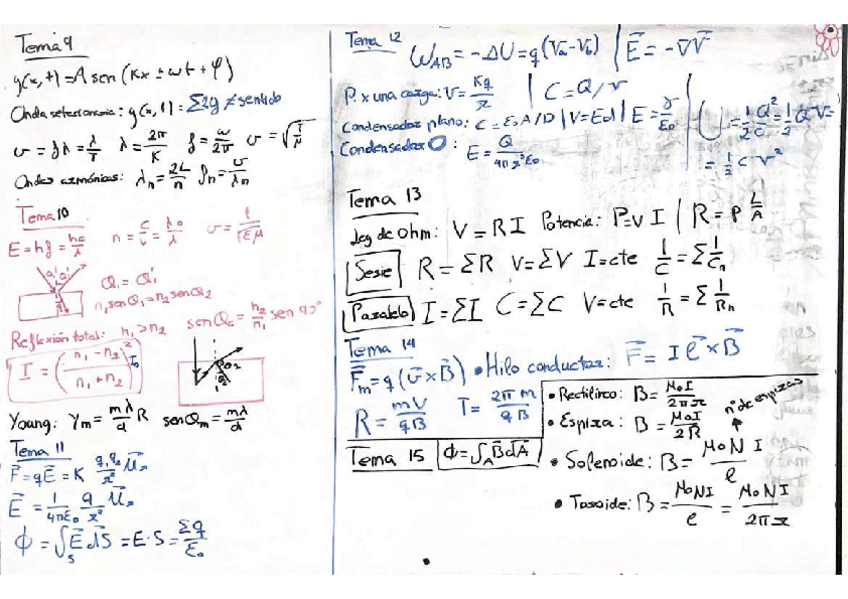 Tema 9
y(x,t) = A sen (Kx ± ωt + φ)
Onda estacionaria: y(x,t) = Σ2y ≠ sentido
v = fλ = λ/T λ = 2π/K f = ω/2π v = √(T/μ)
Ondas armónicas: λn = 2L/n fn = v/λn
Tema 10
E = hf = hc/λ n = c/v = λ0/λ v = 1/√(εμ)
θ1 θ1'
θ1 = θ1'
n1 senθ1 = n2 senθ2
Reflexión total: n1 > n2 senθc = n2/n1 sen 90°
I = (n1 - n2 / n1 + n2)² I0
θ2
Young: Ym = mλ/d R senθm = mλ/d
Tema 11
F = qE = K q1q2/r² ur
E = 1/4πε0 q/r² ur
Φ = ∫s E dS = E·S = Σq/ε0
Tema 12
WAB = -ΔU = q(Va - Vb) | E = -∇V
P. x una carga: V = Kq/r | C = Q/V
Condensador plano: C = ε0 A/D | V = Ed | E = γ/ε0 | U = 1/2 Q²/C = 1/2 QV =
Condensador O: E = Q/4πr²ε0 = 1/2 C V²
Tema 13
Ley de Ohm: V = RI Potencia: P = VI | R = ρ L/A
Serie R = ΣR V = ΣV I = cte 1/C = Σ 1/Cn
Paralelo I = ΣI C = ΣC V = cte 1/R = Σ 1/Rn
Tema 14
Fm = q(v×B) • Hilo conductor: F = I l × B
R = mV/qB T = 2πm/qB
• Rectilíneo: B = μ0I/2πr
nº de espiras
• Espira: B = μ0I/2R
• Solenoide: B = μ0NI/l
• Toroide: B = μ0NI/l = μ0NI/2πr
Tema 15 Φ = ∫A B dA